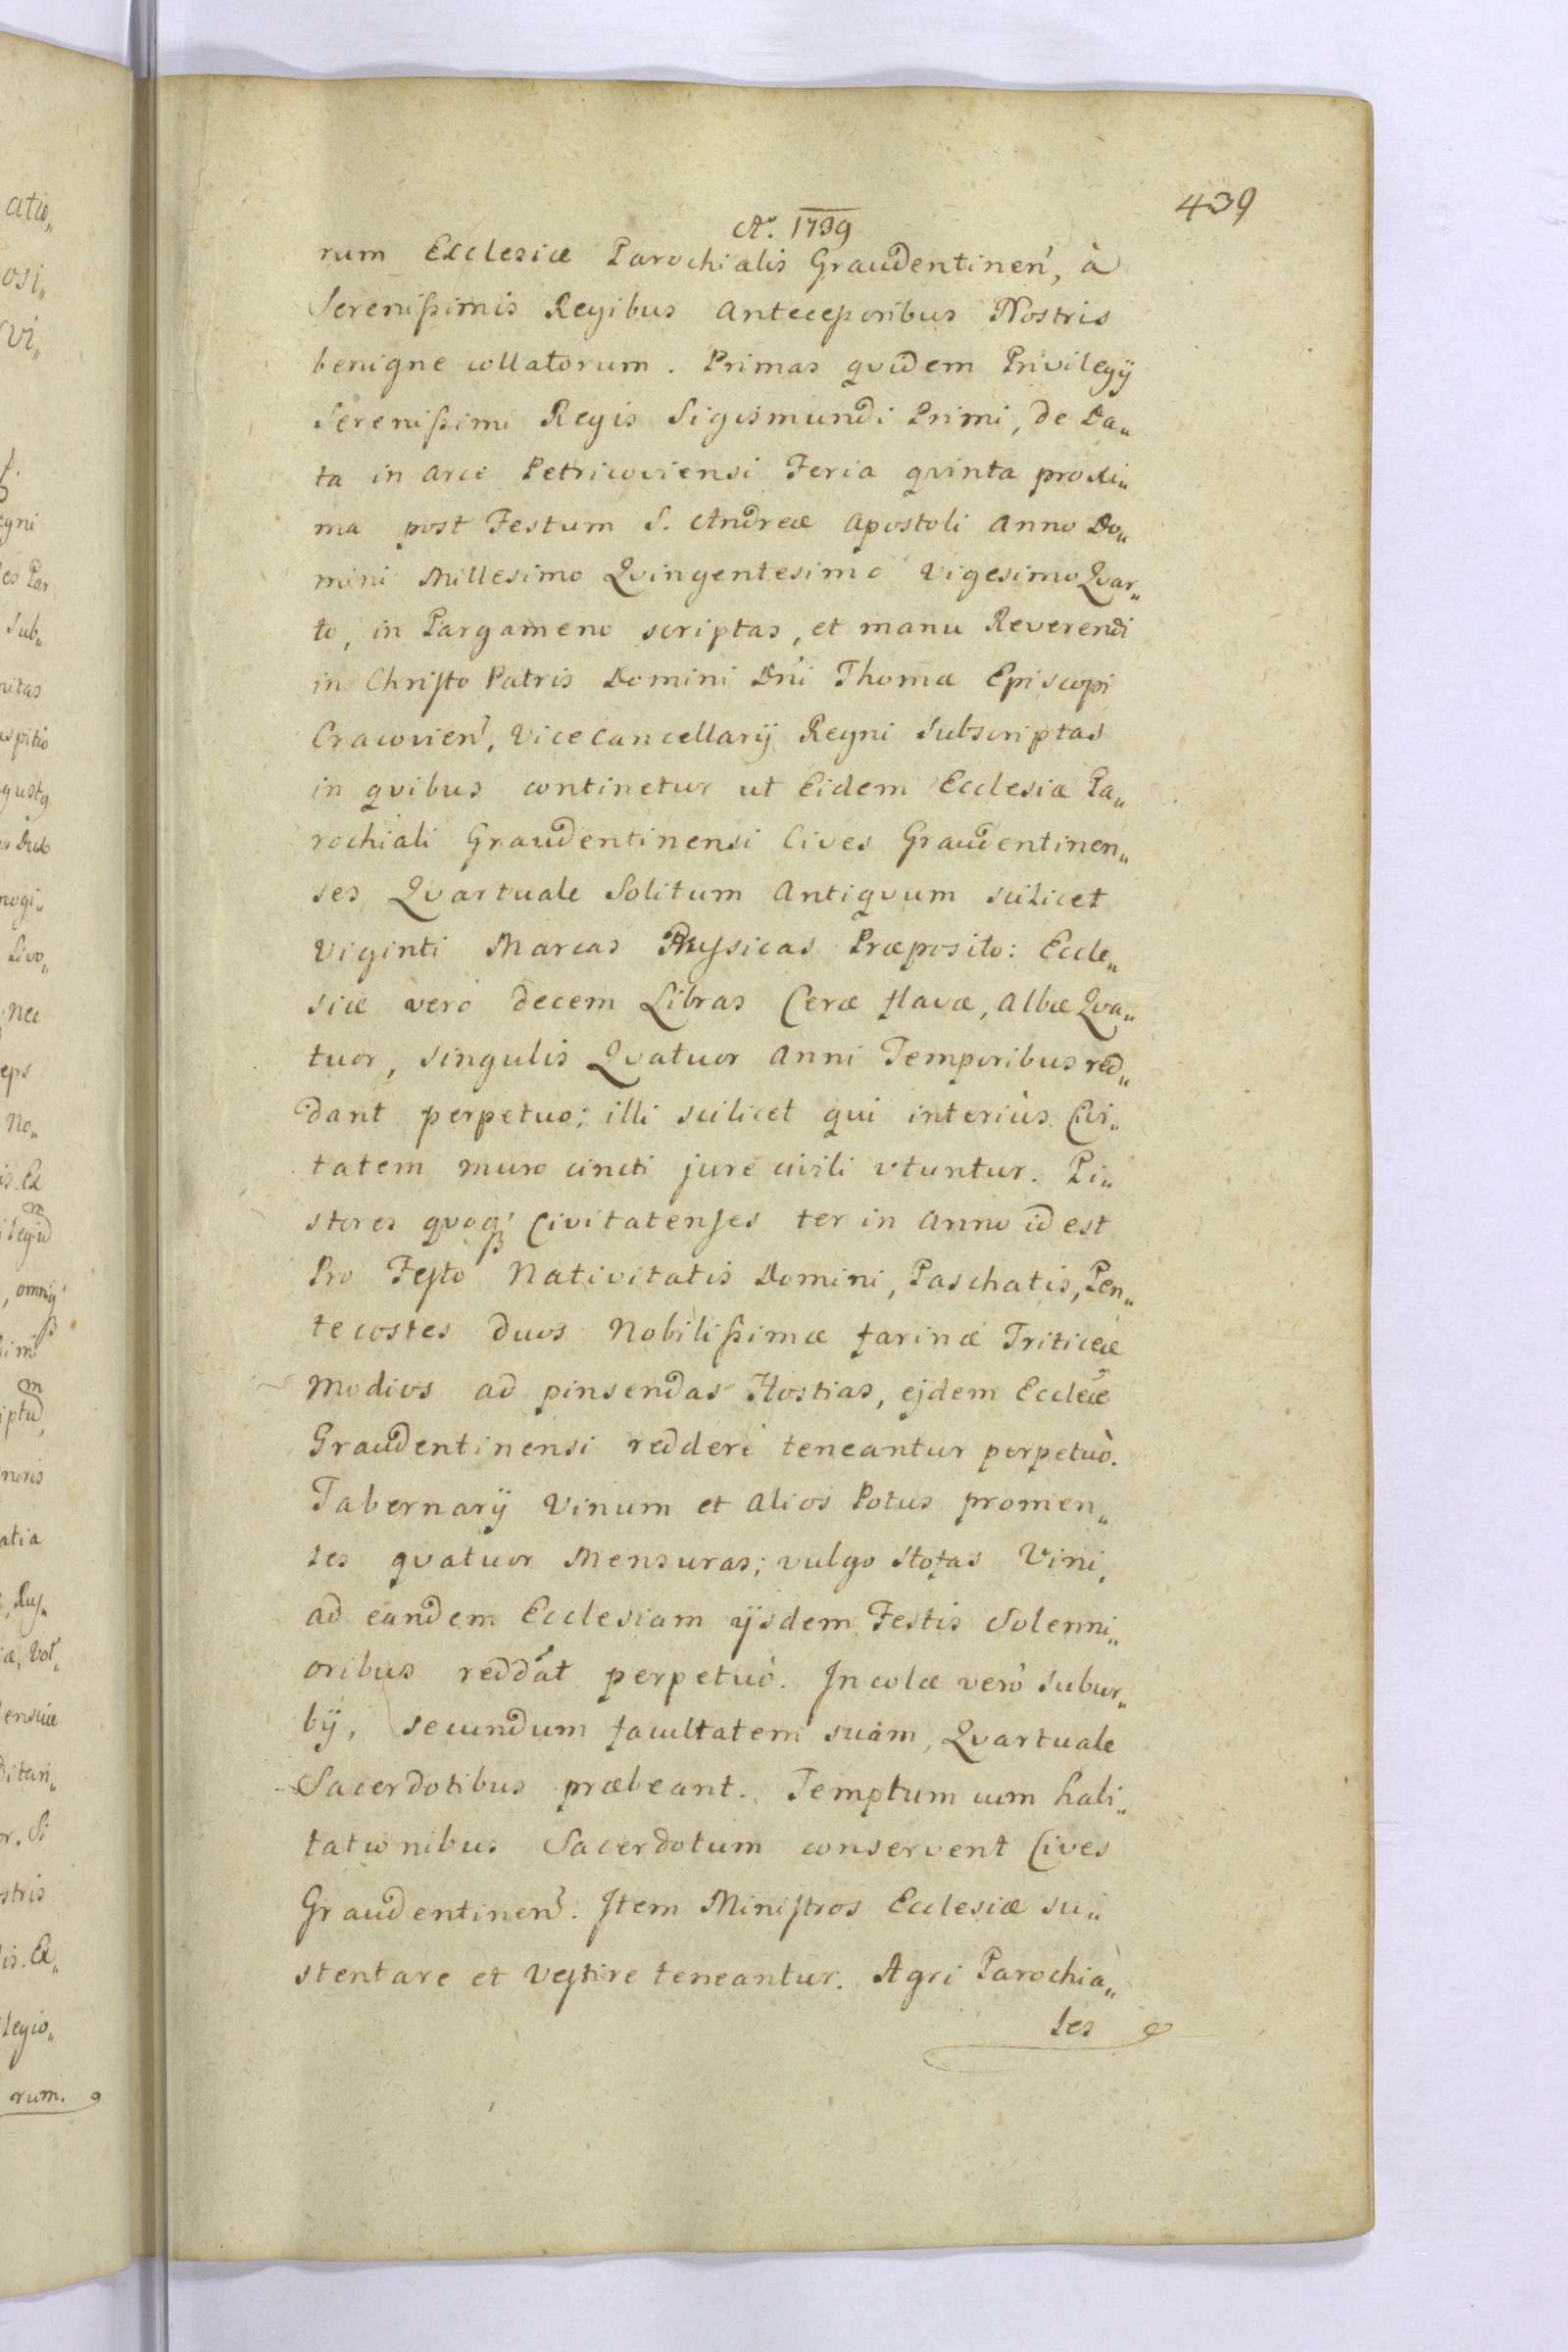 439
Aº. 1739
rum Ecclesiæ Parochialis Graudentinen', à
Serenißimis Regibus Anteceßoribus Nostris
benigne collatorum. Primas qvidem Privilegÿ
Serenißimi Regis Sigismundi Primi, de Da„
ta in Arce Petricoviensi Feria qvinta proxi„
ma post Festum S. Andreæ Apostoli Anno Do„
mini Millesimo Qvingentesimo Vigesimo Qvar„
to, in Pargameno scriptas, et manu Reverendi
in Christo Patris Domini Dn̄i Thomæ Episcopi
Cracovien', Vicecancellarÿ Regni Subscriptas
in qvibus continetur ut Eidem Ecclesiæ Pa„
rochiali Graudentinensi Cives Graudentinen„
ses Qvartuale Solitum Antiqvum scilicet
Viginti Marcas Physicas Præposito: Eccle„
siæ vero decem Libras Ceræ flavæ, Albæ Qva„
tuor, singulis Qvatuor Anni Temporibus red„
dant perpetuo; illi scilicet qui interiùs Civi„
tatem muro cincti jure civili vtuntur. Pi„
stores qvoq' Civitatenses ter in Anno id est
Pro Festo Nativitatis Domini, Paschatis, Pen„
tecostes duos Nobilißimæ farinæ Triticeæ
Modios ad pinsendas Hostias, ejdem Eccleæ
Graudentinensi reddere teneantur perpetuò.
Tabernarÿ Vinum et Alios Potus promen„
tes qvatuor Mensuras; vulgo Stofas Vini,
ad eandem Ecclesiam ÿsdem Festis Solenni„
oribus reddāt perpetuò. Incolæ verò subur„
bÿ, secundum facultatem suam, Qvartuale
Sacerdotibus præbeant. Templum cum habi„
tationibus Sacerdotum conservent Cives
Graudentinen'. Item Ministros Ecclesiæ su„
stentare et Vestire teneantur. Agri Parochia„
les